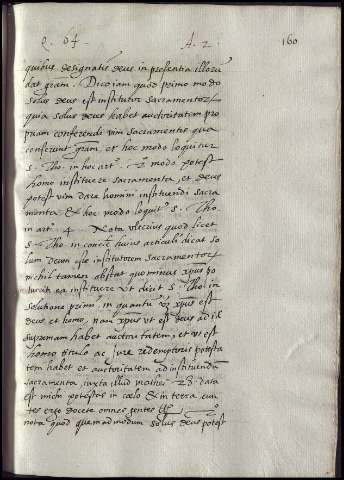 Q. 64. A. 2. 160
quibus designatis deus in presentia illoru
dat gram. Dico iam quod primo modo
solus deus est institutor sacramentorũ
quia solus deus habet auctoritatem pro
priam conferendi vim sacramentis qua
conferunt gram, et hoc modo loquitur
s. Tho. in hoc art.º 2º modo potest
homo instituere sacramenta, et deus
potest vim dare homini instituendi sacra
menta & hoc modo loquit.r s. Tho.
in art. 4. Nota ulterius quod licet
s. Tho. in concl. huius articuli dicat so
lum deum esse institutorem sacramentorũ
nihil tamen obstat quominus xp̃us po
tuerit ea instituere ut dicit s. Tho. in
solutione primi in quantũ xp̃us est
deus et homo, nam xp̃us ut est deus
supremam habet auctoritatem, et ut est
homo titulo ac jure redemptoris potesta
tem habet et auctoritatem ad instituendũ
sacramenta iuxta illud mathei 28. data
est michi potestas in cælo & in terra, eun
tes ergo docete omnes gentes 2º
nota quod quemadmodum solus deus potest